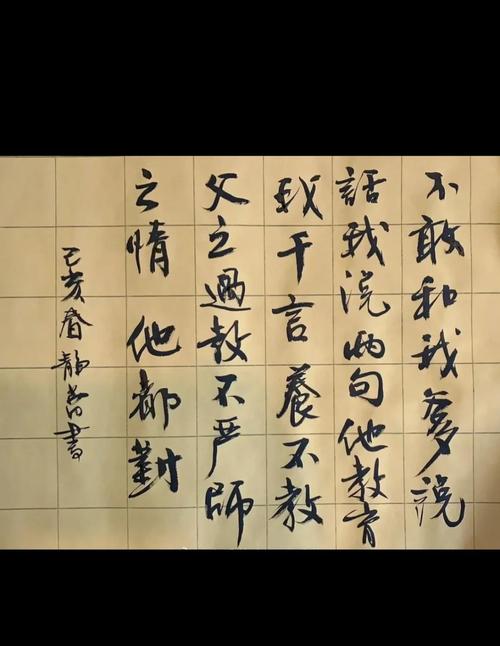 不敢和我爹説
話我说两句他教育
我千言養不教
父之過教不严師
之情他都對
己亥春靜書